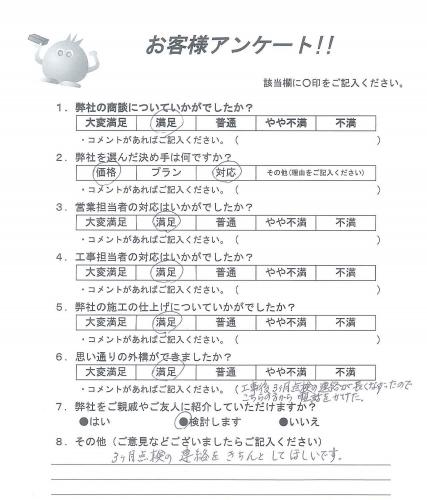 お客様アンケート!!
該当欄に○印をご記入ください。
1. 弊社の商談についていかがでしたか?
大変満足 満足 普通 やや不満 不満
・コメントがあればご記入ください。( )
2. 弊社を選んだ決め手は何ですか?
価格 プラン 対応 その他(理由をご記入ください)
3. 営業担当者の対応はいかがでしたか?
大変満足 満足 普通 やや不満 不満
・コメントがあればご記入ください。( )
4. 工事担当者の対応はいかがでしたか?
大変満足 満足 普通 やや不満 不満
・コメントがあればご記入ください。( )
5. 弊社の施工の仕上げについていかがでしたか?
大変満足 満足 普通 やや不満 不満
・コメントがあればご記入ください。( )
6. 思い通りの外構ができましたか?
大変満足 満足 普通 やや不満 不満
・コメントがあればご記入ください。(工事後3ヶ月点検の連絡が長くなかったので
こちらの方から電話をかけた。
7. 弊社をご親戚やご友人に紹介していただけますか?
●はい ●検討します ●いいえ
8. その他(ご意見などございましたらご記入ください)
3ヶ月点検の連絡をきちんとしてほしいです。